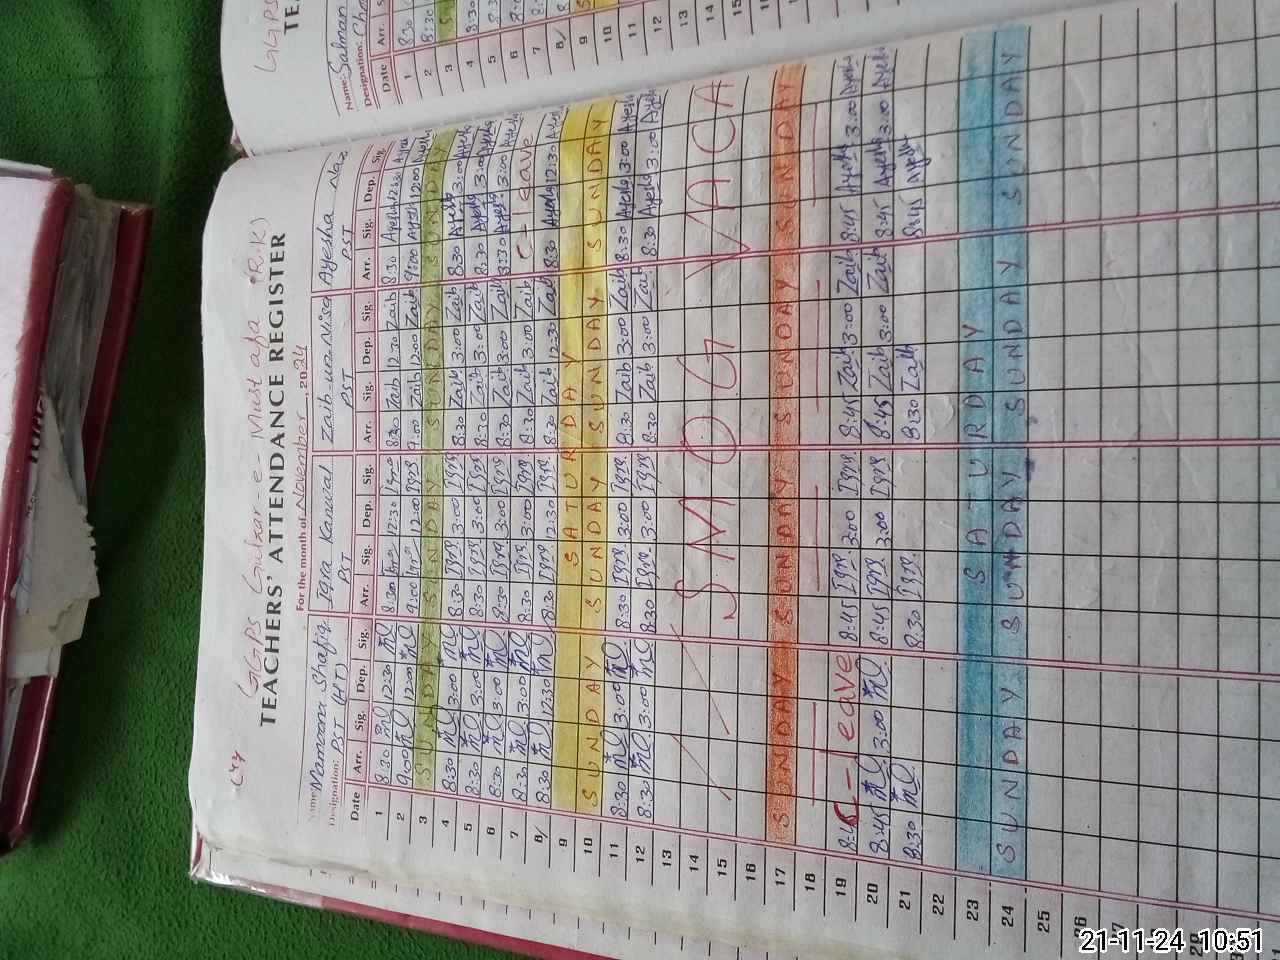 GGPS Gulzar-e-Mustafa (R.K)
TEACHERS' ATTENDANCE REGISTER
For the month of November, 2024
Name: Mamoona Shafiq Iqra Kanwal Zaib-un-Nisa Ayesha Naz
Designation: PST (HT) PST PST PST
Date Arr. Sig. Dep. Sig. Arr. Sig. Dep. Sig. Arr. Sig. Dep. Sig. Arr. Sig. Dep. Sig.
1 8:30 12:30 8:30 Iqra 12:30 Iqra 8:30 Zaib 12:30 Zaib 8:30 Ayesha 12:30 Ayesha
2 9:00 12:00 9:00 Iqra 12:00 Iqra 9:00 Zaib 12:00 Zaib 9:00 Ayesha 12:00 Ayesha
3 SUNDAY SUNDAY SUNDAY SUNDAY
4 8:30 3:00 8:30 Iqra 3:00 Iqra 8:30 Zaib 3:00 Zaib 8:30 Ayesha 3:00 Ayesha
5 8:30 3:00 8:30 Iqra 3:00 Iqra 8:30 Zaib 3:00 Zaib 8:30 Ayesha 3:00 Ayesha
6 8:30 3:00 8:30 Iqra 3:00 Iqra 8:30 Zaib 3:00 Zaib 8:30 Ayesha 3:00 Ayesha
7 8:30 3:00 8:30 Iqra 3:00 Iqra 8:30 Zaib 3:00 Zaib C-leave
8 8:30 12:30 8:30 Iqra 12:30 Iqra 8:30 Zaib 12:30 Zaib 8:30 Ayesha 12:30 Ayesha
9 SATURDAY
10 SUNDAY SUNDAY SUNDAY SUNDAY
11 8:30 3:00 8:30 Iqra 3:00 Iqra 8:30 Zaib 3:00 Zaib 8:30 Ayesha 3:00 Ayesha
12 8:30 3:00 8:30 Iqra 3:00 Iqra 8:30 Zaib 3:00 Zaib 8:30 Ayesha 3:00 Ayesha
13
14 SMOG VACA
15
16
17 SUNDAY SUNDAY SUNDAY SUNDAY
18
19 8:45 C-leave 8:45 Iqra 3:00 Iqra 8:45 Zaib 3:00 Zaib 8:45 Ayesha 3:00 Ayesha
20 8:45 3:00 8:45 Iqra 3:00 Iqra 8:45 Zaib 3:00 Zaib 8:45 Ayesha 3:00 Ayesha
21 8:30 8:30 Iqra 8:30 Zaib 8:45 Ayesha
22
23 SATURDAY
24 SUNDAY SUNDAY SUNDAY SUNDAY
25
26
27
28
GGPS
Name: Salman
Designation: Cha
Date Arr.
1 8:30
2 8:30
3
4 8:30
5
6
7
8
9
10
11
12
13
14
15
21-11-24 10:51